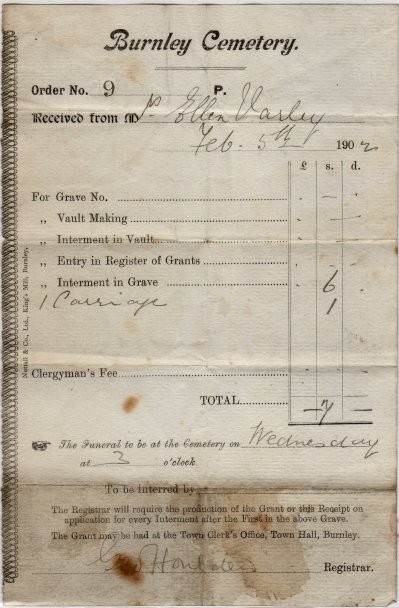 Burnley Cemetery.
Order No. 9 P.
Received from Mrs Ellen Varley
Feb. 5th 1902
£ s. d.
For Grave No. - — -
„ Vault Making - — -
„ Interment in Vault - — -
„ Entry in Register of Grants - — -
„ Interment in Grave - 6 -
1 Carriage 1
Clergyman's Fee
TOTAL — 7 -
The Funeral to be at the Cemetery on Wednesday
at 3 o'clock
To be interred by
The Registrar will require the production of the Grant or this Receipt on
application for every Interment after the First in the above Grave.
The Grant may be had at the Town Clerk's Office, Town Hall, Burnley.
Registrar.
Nuttall & Co., Ltd., King's Mill, Burnley.